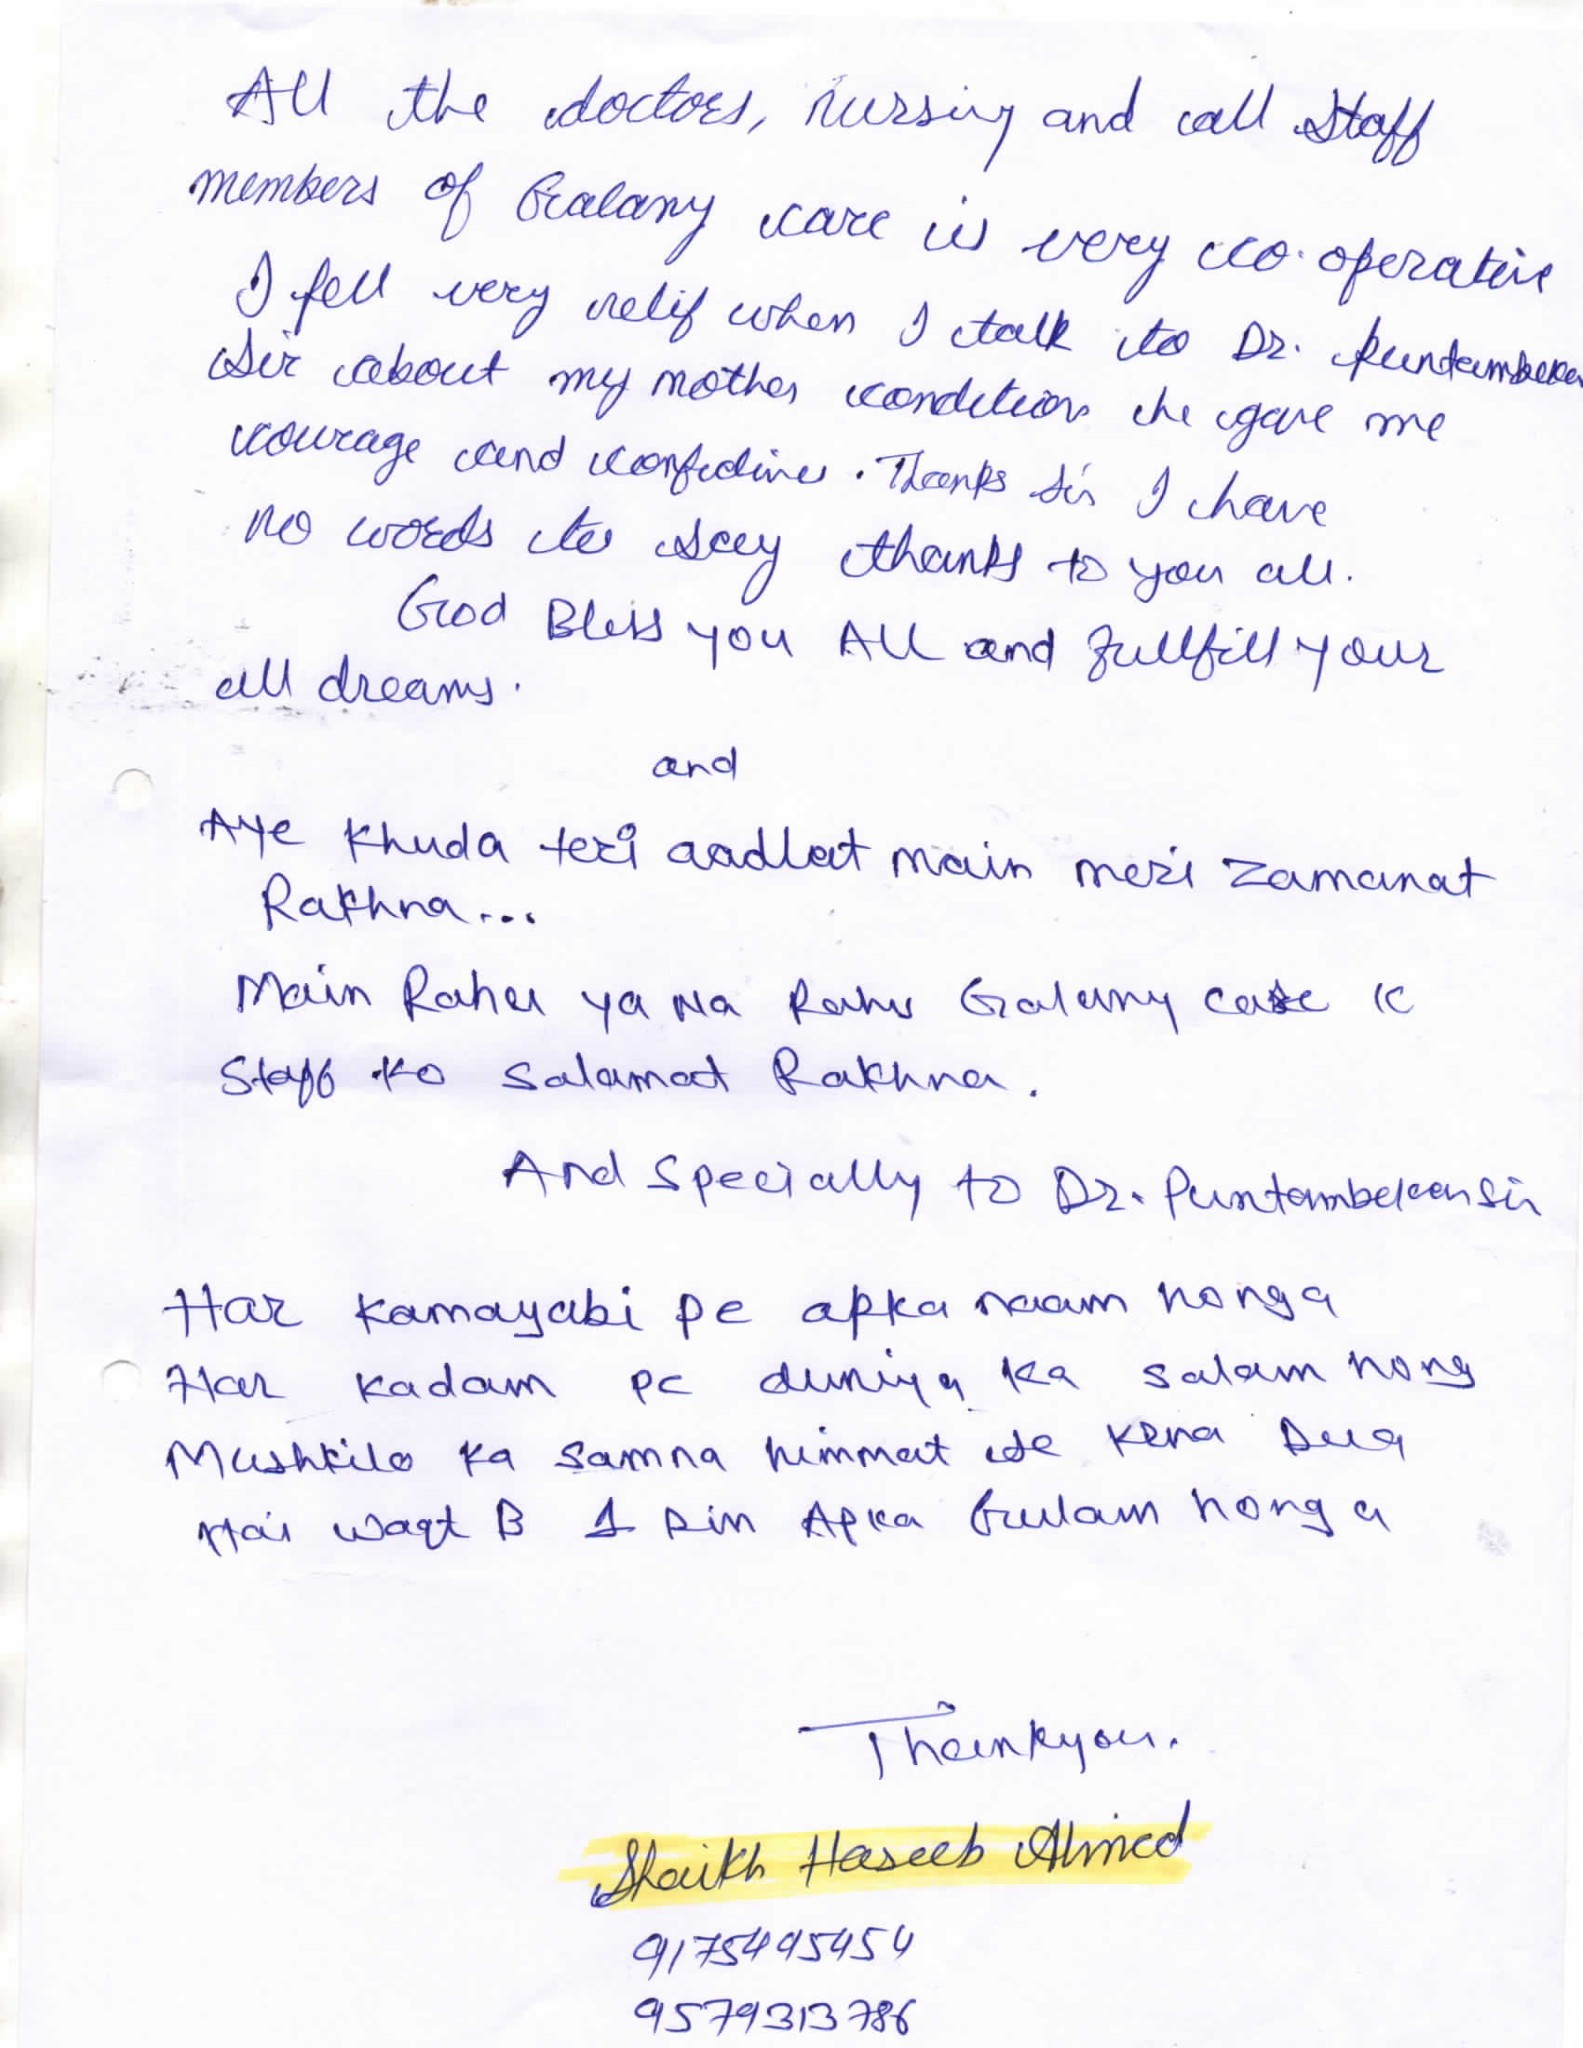 All the doctors, nursing and all staff
members of Galaxy care is very co-operative
I fell very relif when I talk to Dr. Puntambekar
Sir about my mother condition he gave me
courage and confidines. Thanks Sir I have
no words to say thanks to you all.
God Bless you All and fullfill your
all dreams.
and
Aye Khuda teri aadlat main meri zamanat
Rakhna...
Main Rahu ya Na Rahu Galaxy care k
Staff ko salamat Rakhna.
And Specially to Dr. Puntambekar Sir
Har kamayabi pe apka naam honga
Har kadam pe duniya ka salam hong
Mushkilo ka samna himmat se krna Dua
Hai waqt B 1 Din Apka Gulam honga
Thankyou.
Shaikh Haseeb Ahmed
9175495454
9579313786